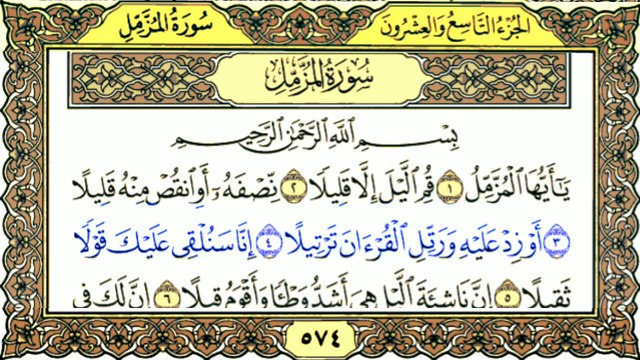 الجزء التاسع والعشرون
سورة المزمل
سورة المزمل
بِسْمِ اللَّهِ الرَّحْمَٰنِ الرَّحِيمِ
يَٰٓأَيُّهَا الْمُزَّمِّلُ ١ قُمِ الَّيْلَ إِلَّا قَلِيلًا ٢ نِّصْفَهُۥٓ أَوِ انقُصْ مِنْهُ قَلِيلًا
٣ أَوْ زِدْ عَلَيْهِ وَرَتِّلِ الْقُرْءَانَ تَرْتِيلًا ٤ إِنَّا سَنُلْقِى عَلَيْكَ قَوْلًا
ثَقِيلًا ٥ إِنَّ نَاشِئَةَ الَّيْلِ هِىَ أَشَدُّ وَطْـًٔا وَأَقْوَمُ قِيلًا ٦ إِنَّ لَكَ فِى
٥٧٤